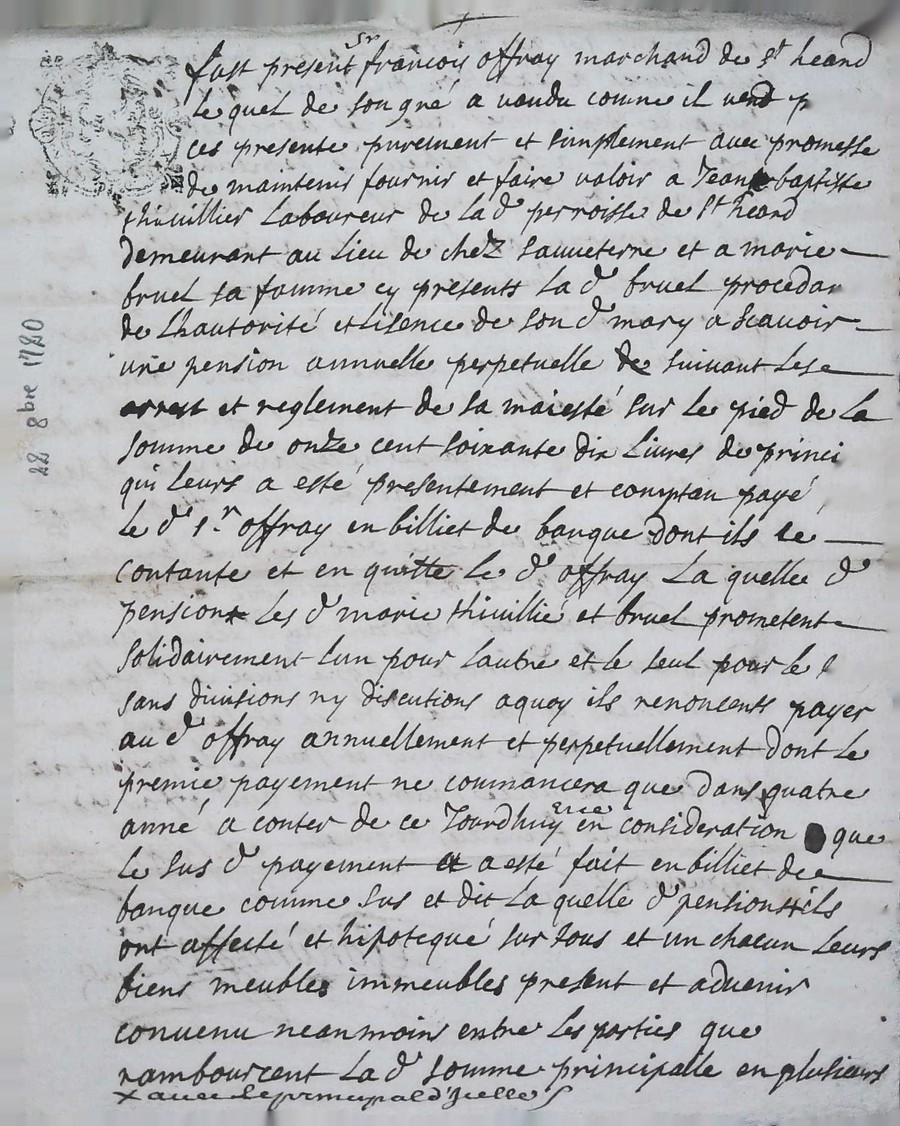 fust present sr francois offray marchand de st heand
le quel de son gré a vandu comme il vend p
ces presente purement et simplement avec promesse
de maintenir fournir et faire valoir a Jean baptiste
thivillier Laboureur de la d perroisse de st heand
demeurant au Lieu de chez sauveterre et a marie
bruel sa famme cy presents La d bruel procedar
de Lhautorité et Lisence de son d mary a scavoir
une pension annuelle perpetuelle de suivant Les
arrest et reglement de sa maiesté sur Le pied de La
somme de onze cent soixante dix Livres de princi
qui Leurs a esté presentement et comptan payé
Le d sr offray en billiet de banque dont ils se
contante et en quitte Le d offray La quelle d
pension Les d marie thivillié et bruel prometent
solidairement lun pour lautre et le seul pour le
sans divisions ny discutions a quoy ils renoncents payer
au d offray annuellement et perpetuellement dont Le
premie payement ne commancera que dans quatre
anné a conter de ce Jourdhuy en consideration que
Le sus d payement a esté fait en billiet de
banque comme sus et dit La quelle d pension ils
ont affecté et hipotequé sur tous et un chacun Leurs
biens meubles immeubles present et advenir
convenu neanmoins entre Les parties que
rambourcent La d somme principalle en plusieurs
x avec Le principal d'icelle
22 8bre 1720